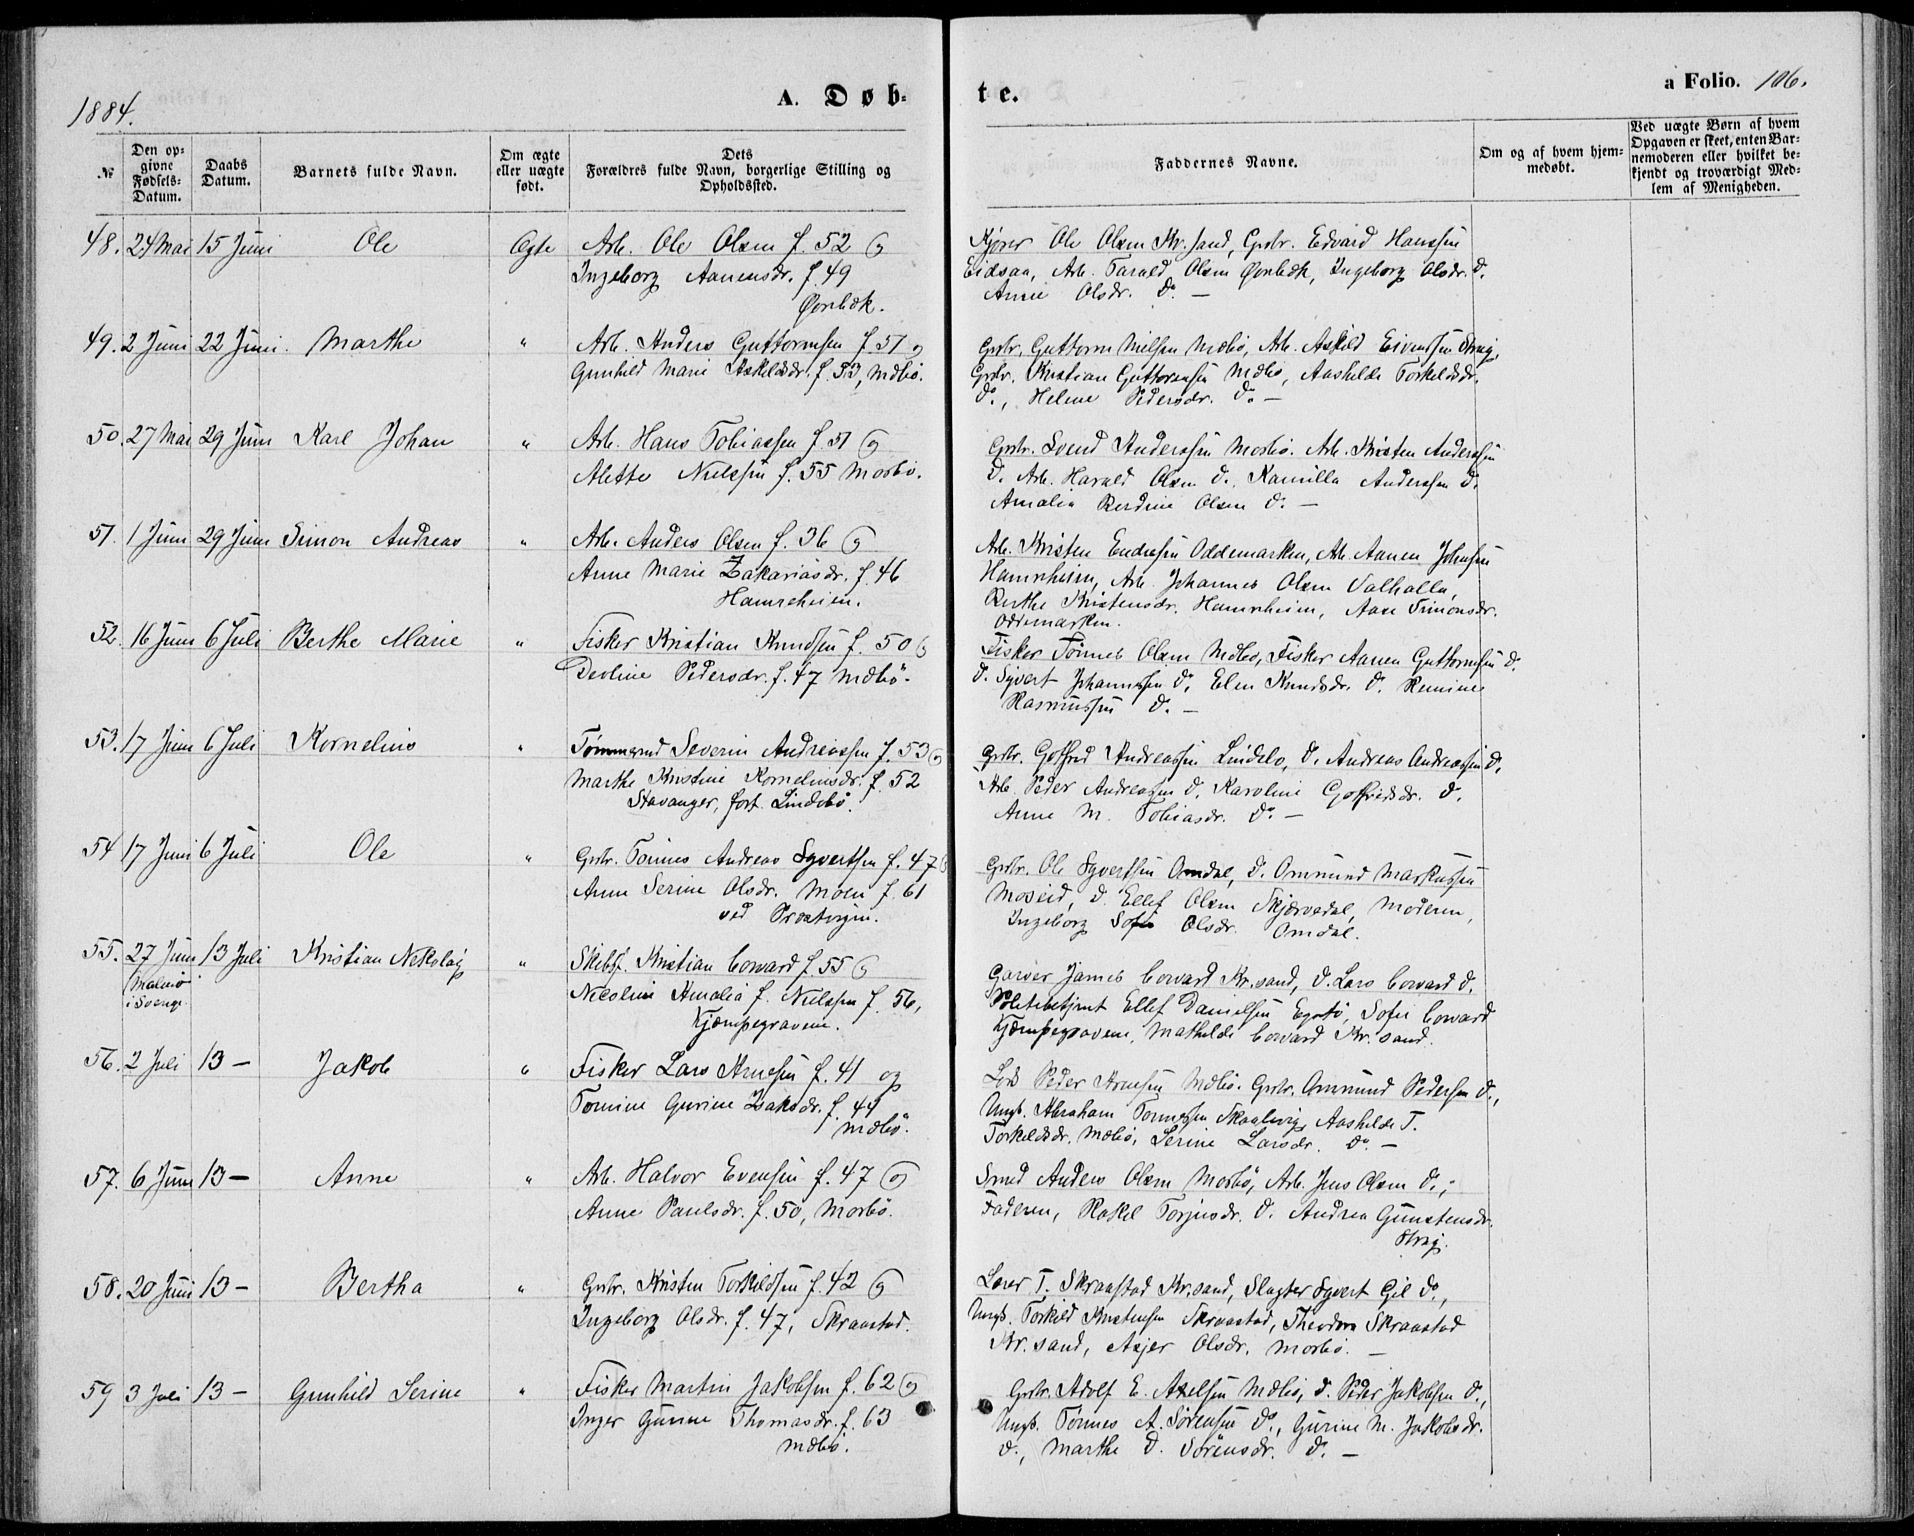 1884.
A. Døb-
te.
a Folio. 106.
№
Den op-
givne
Fødsels-
Datum.
Daabs
Datum.
Barnets fulde Navn.
Om ægte
eller uægte
født.
Dets
Forældres fulde Navn, borgerlige Stilling og
Opholdssted.
Faddernes Navne.
Om og af hvem hjem-
medøbt.
Ved uægte Børn af hvem
Opgaven er skeet, enten Bar-
nemoderen eller hvilket be-
kjendt og troværdigt Med-
lem af Menigheden.
48. 24 Mai 15 Juni Ole Ægte Arb. Ole Olsen f. 52 og
Ingeborg Aanensdr. f. 49
Ole Olsen Kr.sand, Grbr. Edvard Hanssen
Eidsaa, Arb. Tarald Olsen Ørnbæk, Ingeborg Olsdr. d.
Ørnbæk.
Anne Olsdr. do. —
49. 2 Juni 22 Juni. Marthe " Arb. Anders Guttormsen f. 51 og
Gunhild Marie Askildsdr. f. 53, Mæbø.
Grbr. Guttorm Nielsen Mæbø, Arb. Askild Eivindsen Strai,
Grbr. Kristian Guttormsen Mæbø, Aashilde Torkildsdr.
do., Helene Pedersdr. do. —
50. 27 Mai 29 Juni Karl Johan " Arb. Hans Tobiassen f. 51 og
Alette Nielsen f. 55 Mosbø.
Grbr. Svend Anderssen Mosbø. Arb. Kristen Anderssen
d. Arb. Harald Olsen d. Kamilla Andersen d.
Amalia Berdine Olsen d. —
51. 1 Juni 29 Juni Simon Andreas " Arb. Anders Olsen f. 36 og
Anne Marie Zakariasdr. f. 46
Hamreheien.
Arb. Kristen Endresen Oddemarken, Arb. Aanen Johnsen
Hamreheien, Arb. Johannes Olsen Valhalla,
Berthe Kristensdr. Hamreheien, Aase Simonsdr.
Oddemarken.
52. 16 Juni 6 Juli Berthe Marie " Fisker Kristian Knudsen f. 50 og
Devline Pedersdr. f. 47 Mæbø.
Fisker Tønnes Olsen Mæbø, Fisker Aanen Guttormsen d.
d. Syvert Johannssen d. Elen Knudsdr. d.
Rasmussen d. —
53. 17 Juni 6 Juli Kornelius " Tømmermd Severin Andreassen f. 53 og
Marthe Kristine Korneliusdr. f. 52
Stavanger, fort. Lindebø.
Grbr. Gotfred Andreassen Lindebø, d. Andreas Andreassen d.
Arb. Peder Andreassen d. Karoline Gotfredsdr. d.
Anne M. Tobiasdr. do. —
54 17 Juni 6 Juli Ole " Grbr. Tønnes Andreas Syvertsen f. 47 og
Anne Serine Olsdr. Moen f. 61
ved
Grbr. Ole Syvertsen Omdal, d. Ommund Markussen
Moseid, d. Ellef Olsen Skjærvedal, Moderen,
Ingeborg Sofie Olsdr. Omdal.
55. 27 Juni 13 Juli Kristian Nikolai " Skibsf. Kristian Coward f. 55 og
Malmø
i Sverige
Nicoline Amalia f. Nielsen f. 56,
Kjæmpegraven.
Garver James Coward Kr.sand, d. Lars Coward d.
Politibetjent Ellef Danielsen Egstø, Sofie Coward
Kjæmpegraven, Mathilde Coward Kr.sand.
56. 2 Juli 13 — Jakob " Fisker Lars Arnesen f. 41 og
Tomine Gurine Isaksdr. f. 44
Mæbø.
Lods Peder Arnesen Mæbø. Grbr. Ommund Pedersen d.,
Ungk. Abraham Tønnessen Skaalevig, Aashilde T.
Torkildsdr. Mæbø, Serine Larsdr. do. —
57. 6 Juni 13 — Anne " Arb. Halvor Evensen f. 47 og
Anne Paulsdr. f. 50, Mosbø.
Smed Anders Olsen Mosbø, Arb. Jens Olsen d.,
Faderen, Rakel Torjusdr. d. Andrea Gunstensdr.
Strai.
58. 20 Juni 13 — Bertha " Grbr. Kristen Torkildsen f. 42 og
Ingeborg Olsdr. f. 47, Skraastad.
T. Skraastad Kr.sand, Slagter Syvert Gil do.,
Ungk. Torkild Kristensen Skraastad, Theodora Skraastad
Kr.sand, Asjer Olsdr. Mosbø. —
59 3 Juli 13 — Gunhild Serine " Fisker Martin Jakobsen f. 62 og
Inger Gurine Thomasdr. f. 63
Mæbø.
Grbr. Adolf E. Axelsen Mæbø, d. Peder Jakobsen d.,
Ungk. Tønnes A. Sørensen do., Gurine M. Jakobsdr.
d., Marthe D. Sørensdr. d. —